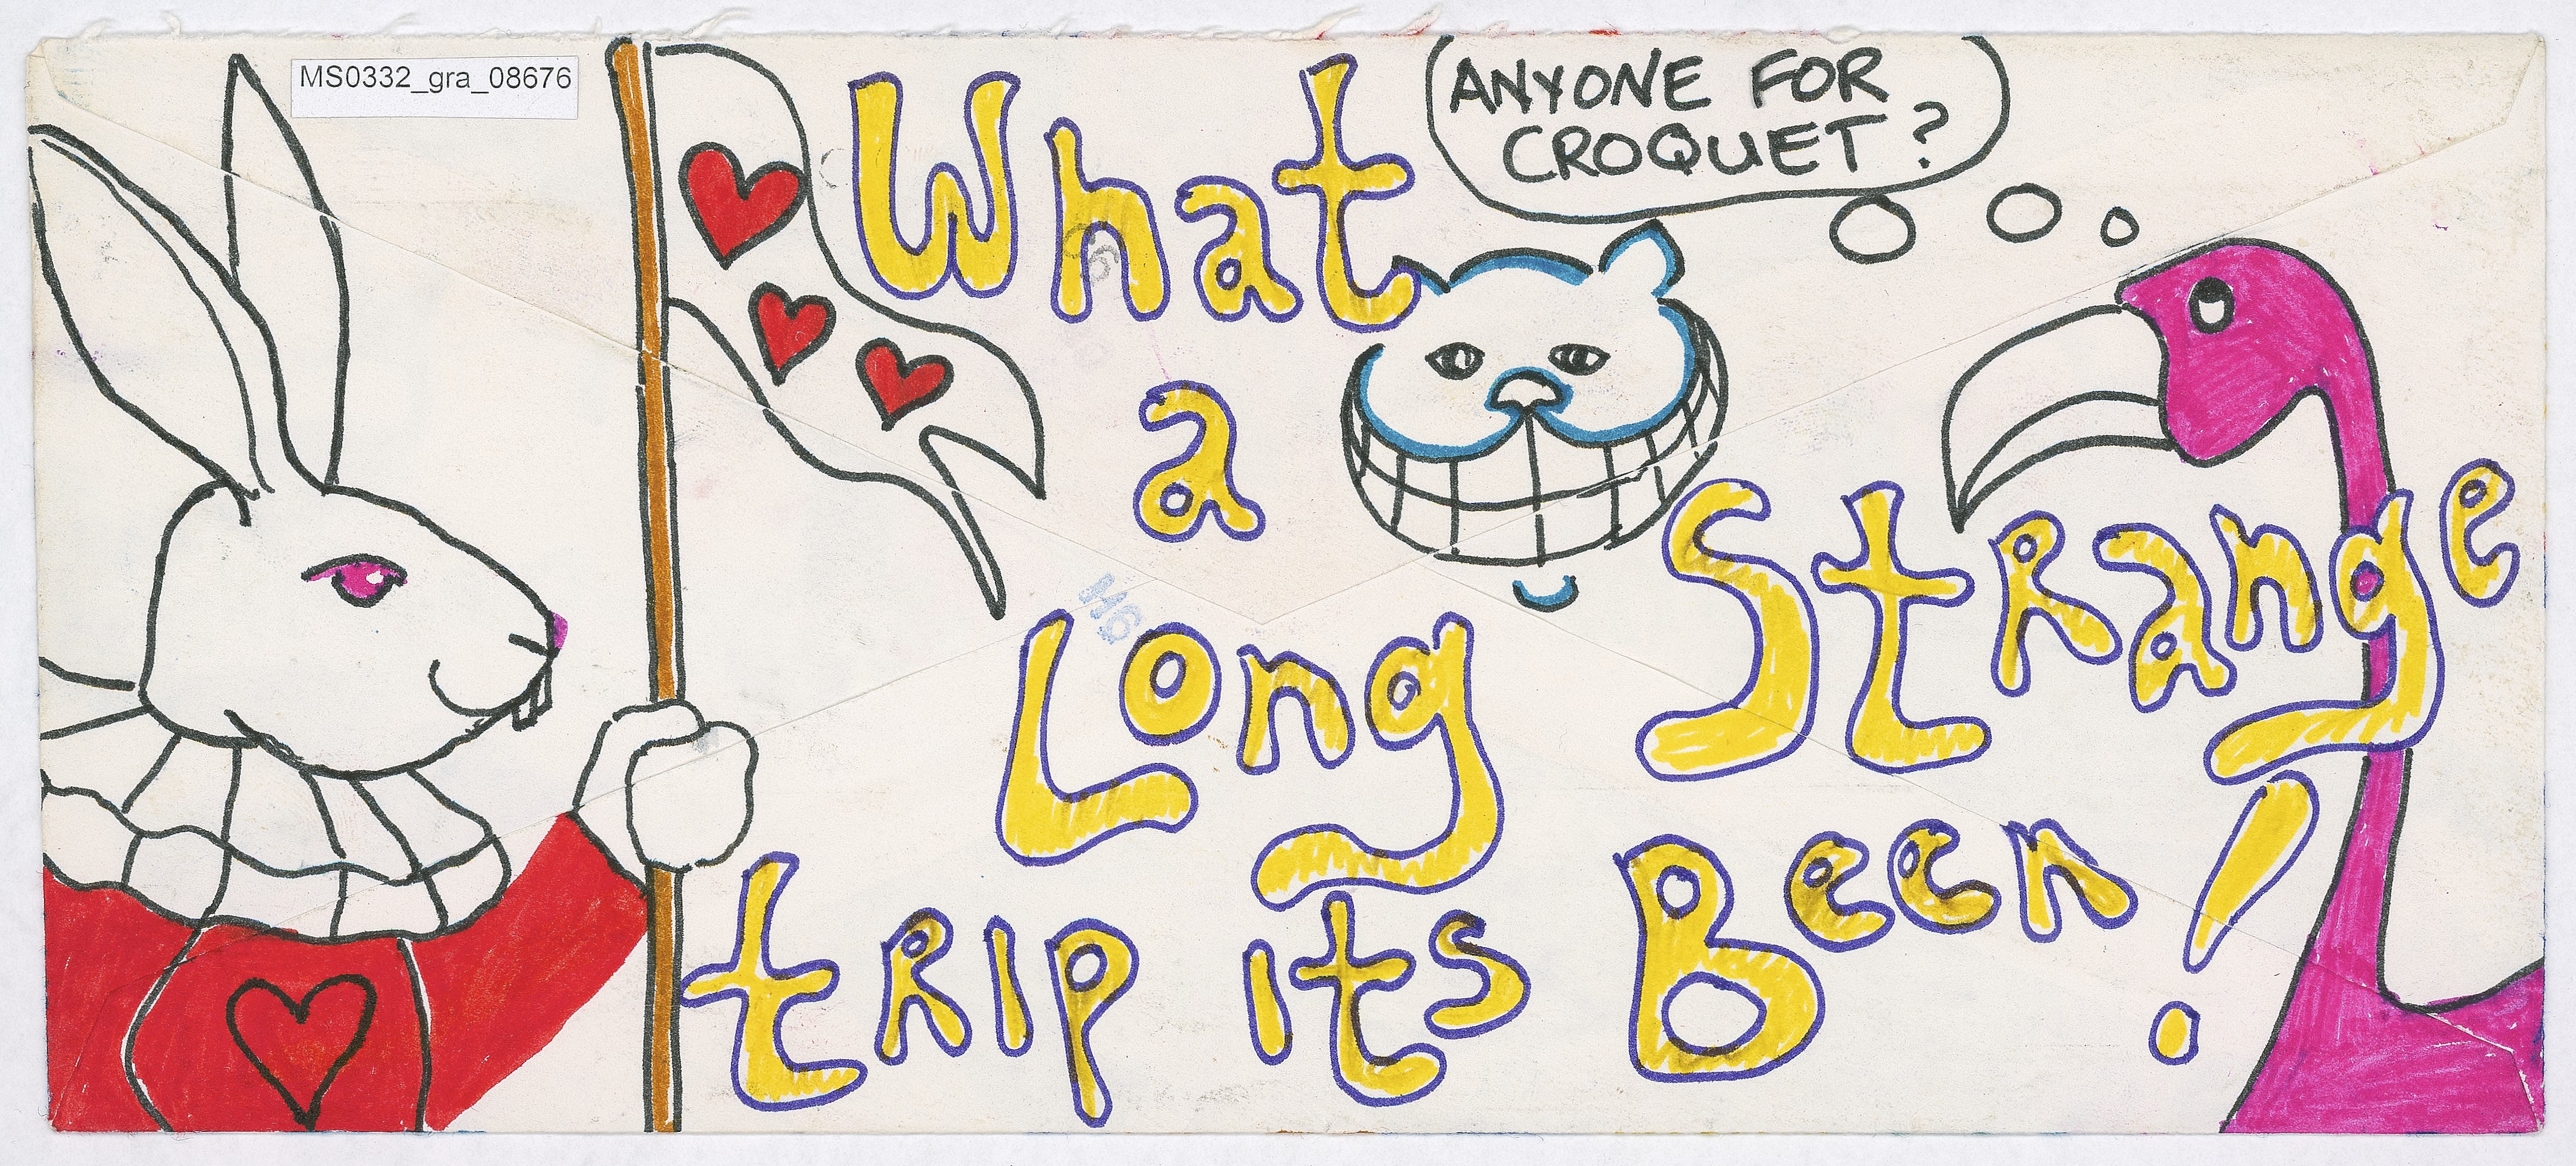 MS0332_gra_08676
ANYONE FOR
CROQUET?
What
a
Long
Strange
tRIP its Been!